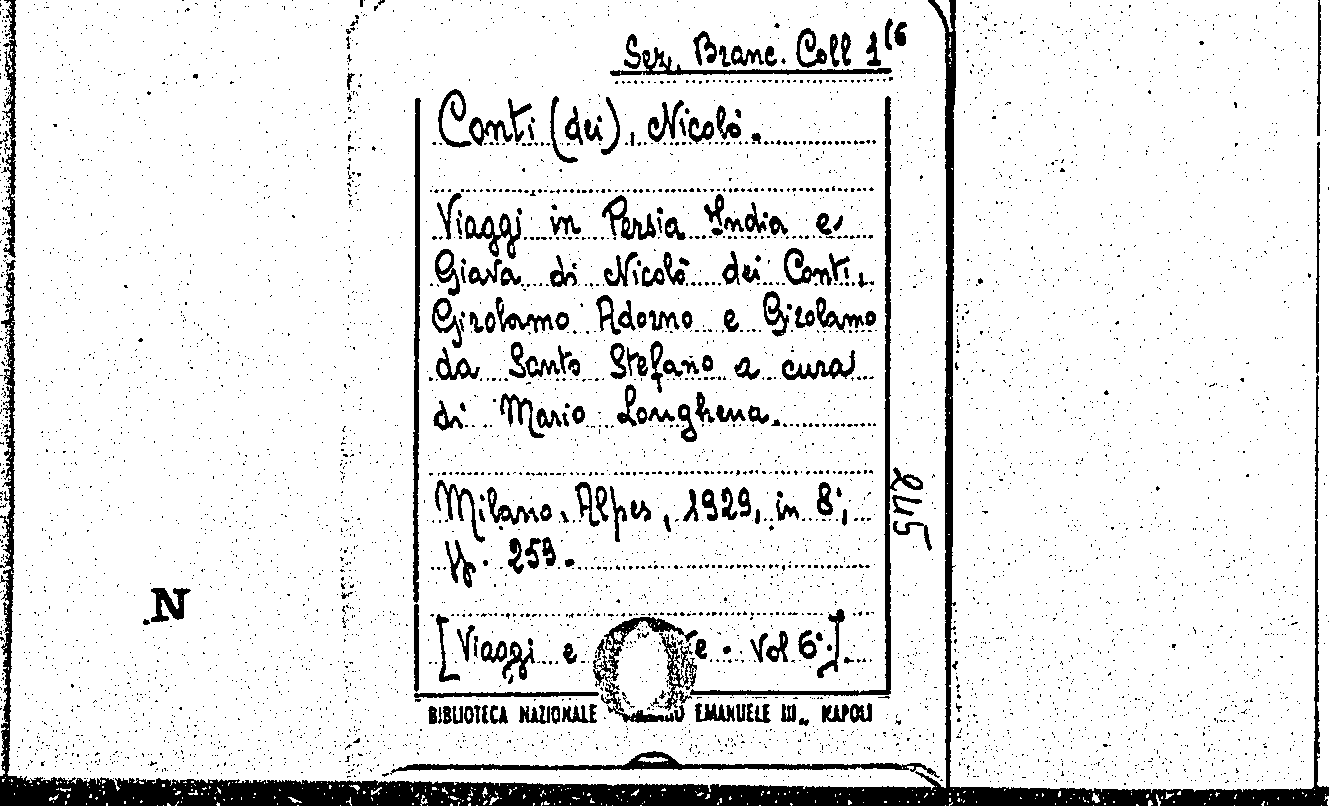 Sez. Branc. Coll 1(6
Conti (dei), Nicolò.
Viaggi in Persia India e
Giava di Nicolò dei Conti,
Girolamo Adorno e Girolamo
da Santo Stefano a cura
di Mario Longhena.
Milano. Alpes, 1929, in 8°,
pp. 259.
[Viaggi e - Vol 6°].
BIBLIOTECA NAZIONALE EMANUELE III„ NAPOLI
245
N